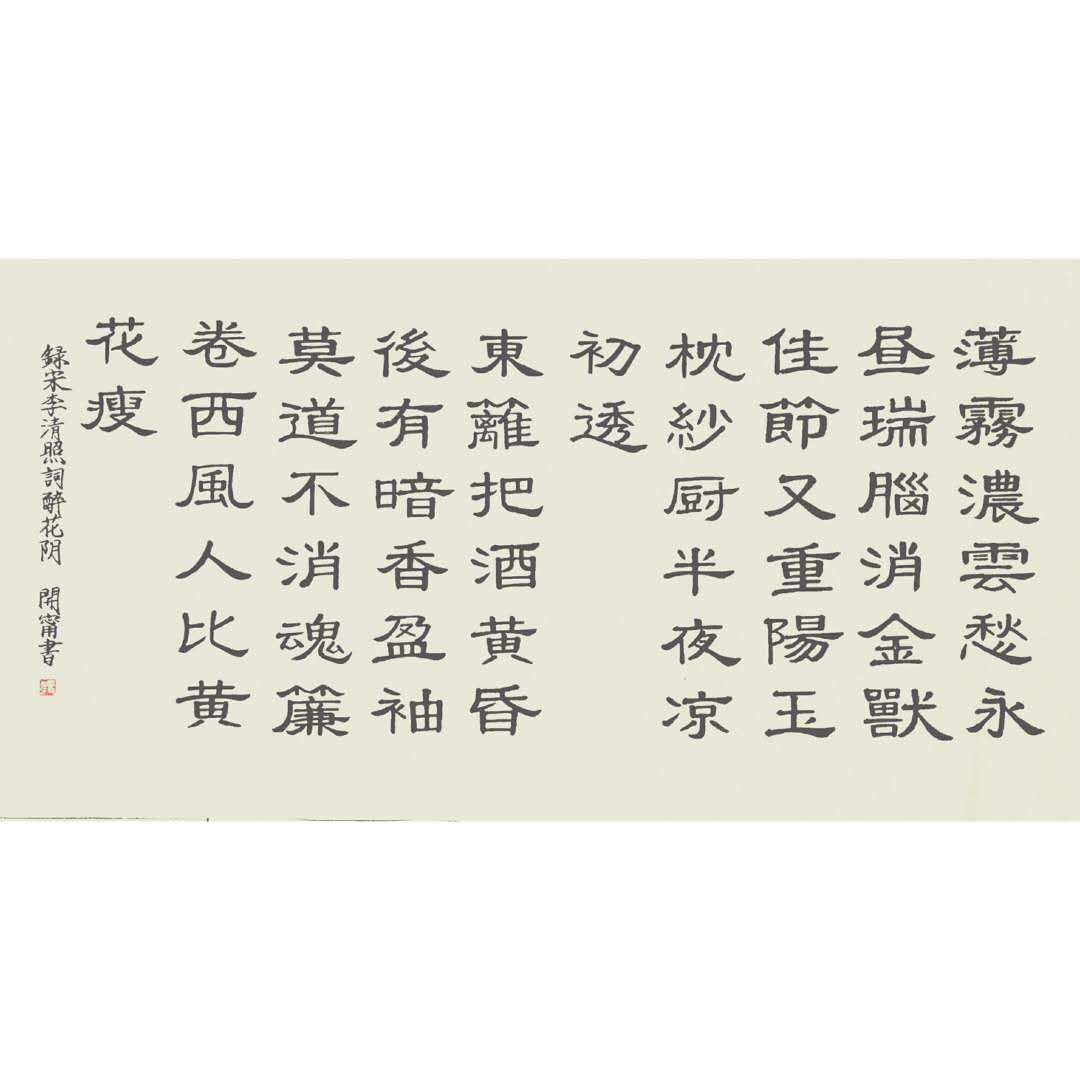 薄霧濃雲愁永
昼瑞腦消金獸
佳節又重陽玉
枕紗厨半夜凉
初透
東籬把酒黄昏
後有暗香盈袖
莫道不消魂簾
卷西風人比黄
花瘦
録宋李清照詞醉花阴 開甯書